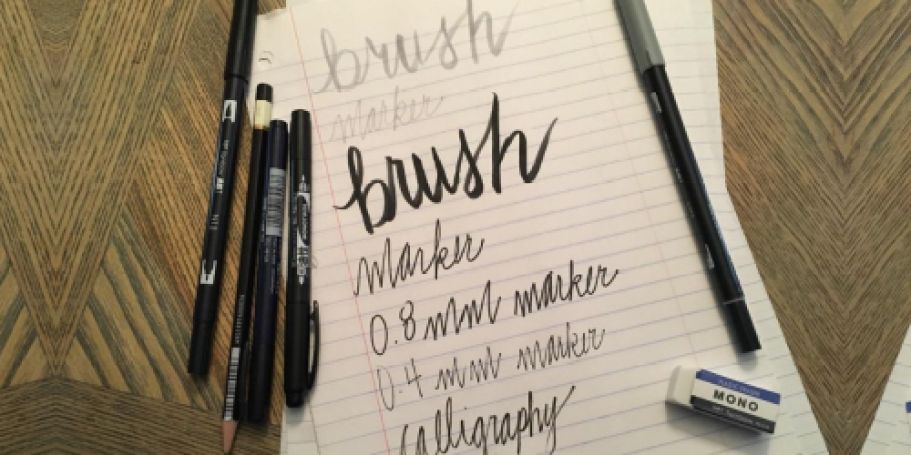 brush
marker
brush
marker
0.8 mm marker
0.4 mm marker
calligraphy
MONO